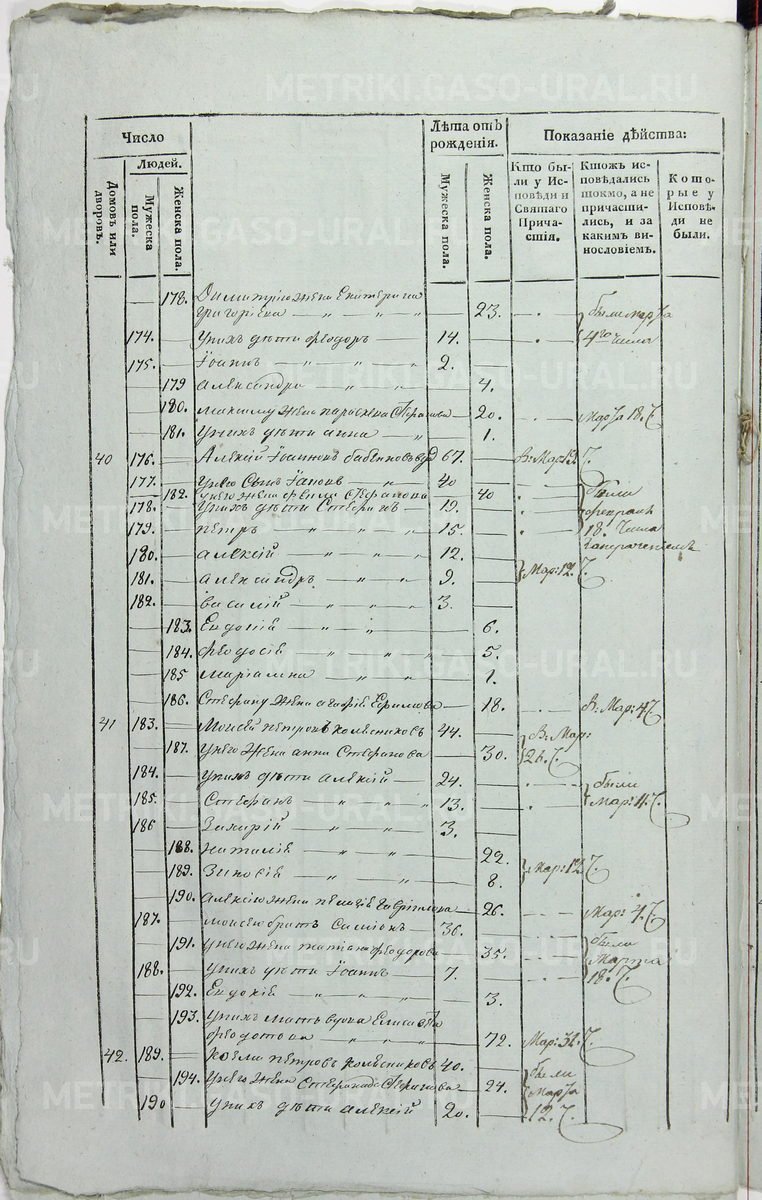 METRIKI.GASO-URAL.RU
Число
Лѣта отъ рожденія.
Показаніе дѣйства:
Людей.
Домовъ или дворовъ.
Мужеска пола.
Женска пола.
Мужеска пола.
Женска пола.
Кто бы-
ли у Ис-
повѣди и
Святаго
Прича-
стія.
Ктожъ ис-
повѣдались
токмо, а не
причасти-
лись, и за
какимъ ви-
нословіемъ.
Кото-
рые у
Исповѣ-
ди не
были.
178. Димитрію жена Екатерина
Григоріева 23. были марта
174. У нихъ дѣти Феодоръ 14. 4го числа
175. Іоаннъ 2.
179 Александра 4.
180. Максиму жена параскева 20. Марта 18.
181. У нихъ дѣти анна 1.
40 176. Алексій Іоанновъ 67. В: Мар:
177. У него Сынъ 40
182. У него жена Стефанова 40 были
178. У нихъ дѣти Стефанъ 19. февраля
179. петръ 15. 18. числа
180. алексій 12.
181. александръ 9. Мар: 12.
182. василій 3.
183. Евдокія 6.
184. Феодосія 5.
185 маріамна 1.
186. Стефану жена агафія Ефимова 18. В: Мар: 4
41 183. Моисей петровъ колѣсниковъ 44. В: Мар:
187. У него жена анна Стефанова 30. 26.
184. У нихъ дѣти алексій 24. были
185. Стефанъ 13. Мар: 4.
186 Захарій 3.
188. наталія 22.
189. Зиновія 8. Мар: 12.
190. алексію жена пелагія Гаврилова 26. Мар: 4.
187. моисею братъ Симеонъ 36. были
191. У него жена татіана феодорова 35. Марта
188. У нихъ дѣти Іоаннъ 7. 18.
192. Евдокія 3.
193. У нихъ мать вдова Елисавета
федотова 72. Мар: 31.
42. 189. петровъ колѣсниковъ 40. были
194. У него жена Стефанида 24. Марта
190 У нихъ дѣти алексій 20. 12.